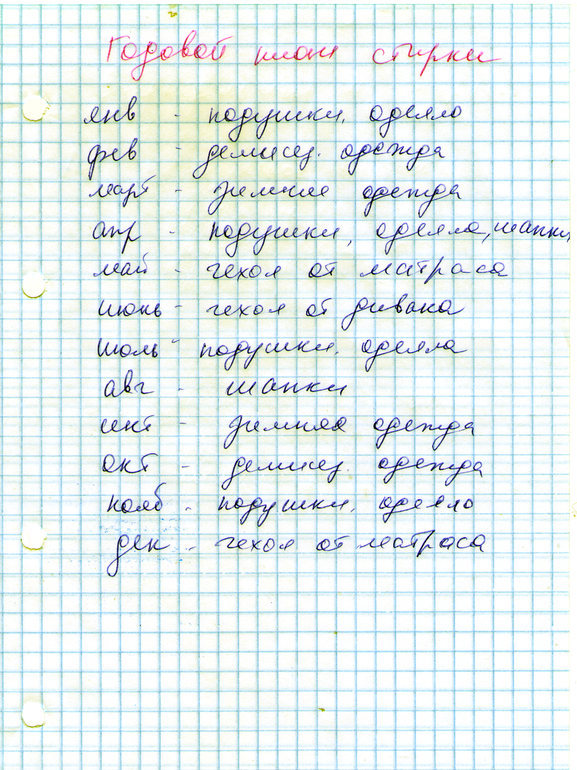 Годовой план стирки
янв - подушки, одеяло
фев - демисез. одежда
март - зимние одежда
апр - подушки, одеяла, шапки
май - чехол от матраса
июнь - чехол от дивана
июль - подушки, одеяла
авг - шапки
сент - зимняя одежда
окт - демисез. одежда
нояб - подушки, одеяло
дек - чехол от матраса